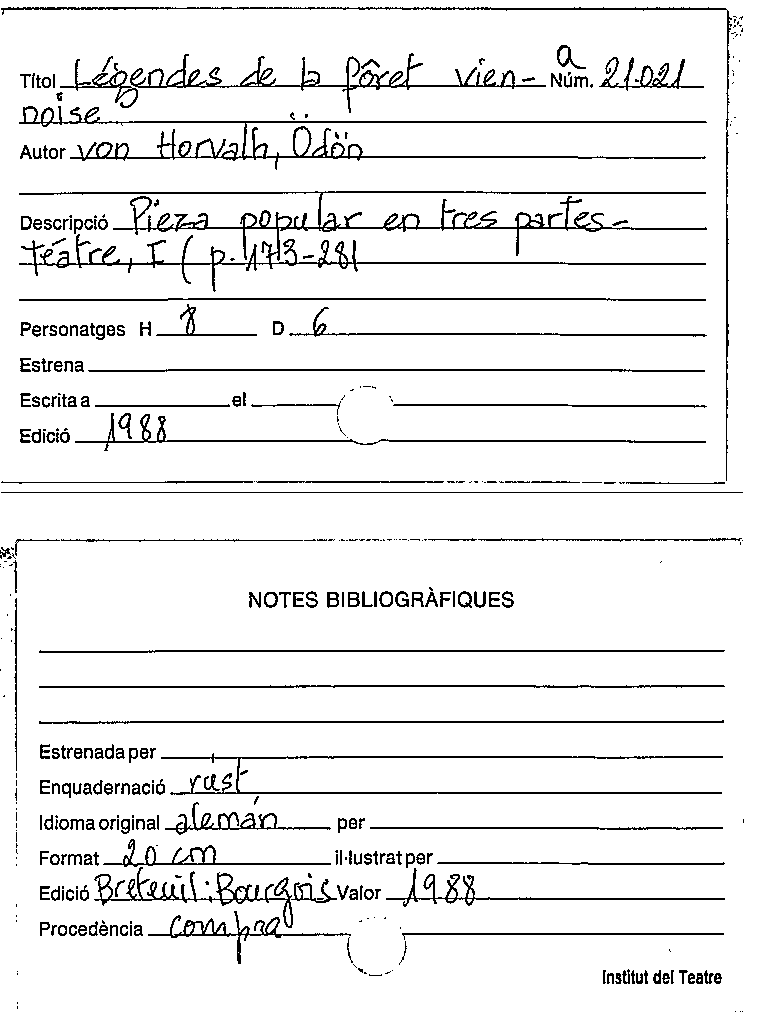 a
Títol Légendes de la fôret vien- Núm. 21.021
noise
Autor von Horvalh, Ödön
Descripció Pieza popular en tres partes-
teatre, I ( p. 173-281
Personatges H 8 D 6
Estrena
Escrita a el
Edició 1988
NOTES BIBLIOGRÀFIQUES
Estrenada per
Enquadernació rust
Idioma original alemán per
Format 20 cm il·lustrat per
Edició Breteuil: Bourgois Valor 1988
Procedència compra
Institut del Teatre